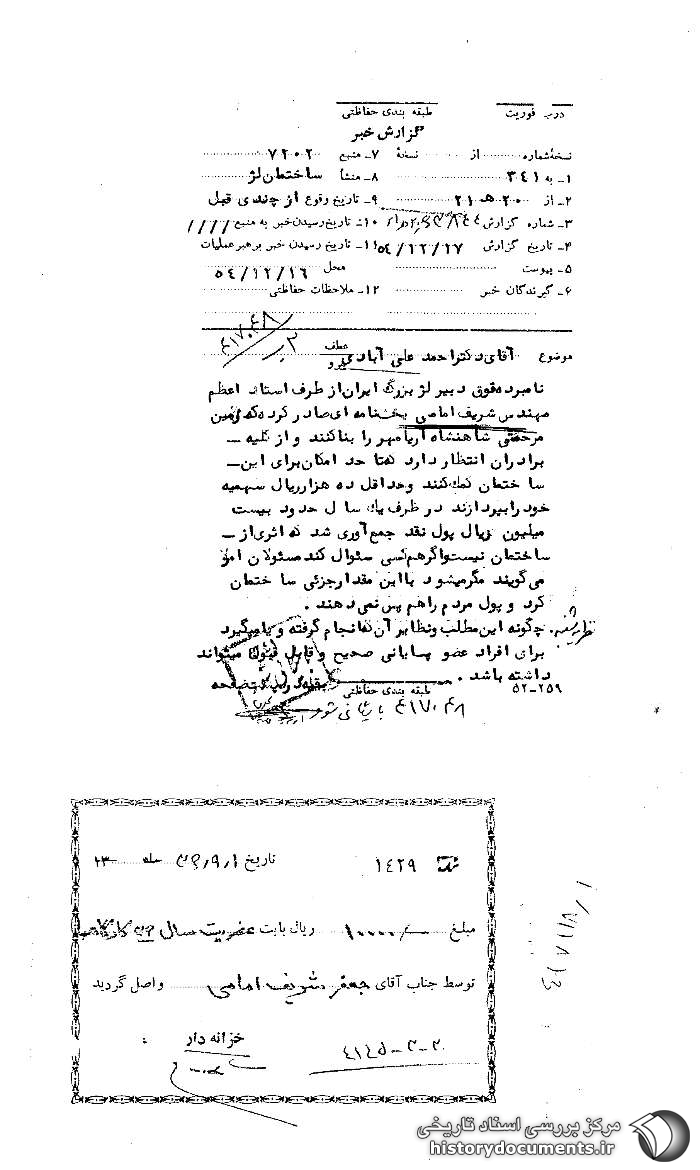 درجه فوریت
طبقه بندی حفاظتی
گزارش خبر
نسخهٔ شماره از نسخهٔ
۱ـ به ۳۴۱
۲ـ از ۲۰ هـ ۲۱
۳ـ شماره گزارش
۴ـ تاریخ گزارش ۵۴/۱۲/۱۷
۵ـ پیوست
۶ـ گیرندگان خبر
۷ـ منبع ۷۲۰۲
۸ـ منشأ ساختمان لژ
۹ـ تاریخ وقوع از چندی قبل
۱۰ـ تاریخ رسیدن خبر به منبع ////
۱۱ـ تاریخ رسیدن خبر برهبر عملیات
محل ۵۴/۱۲/۱۶
۱۲ـ ملاحظات حفاظتی
۴۱۷۰۴۸
موضوع آقای دکتر احمد علی آبادی
عطف
پیرو
نامبرده فوق دبیر لژ بزرگ ایران از طرف استاد اعظم
مهندس شریف امامی بخشنامه ای صادر کرده که زمین
مرحمتی شاهنشاه آریامهر را بنا کنند و از کلیه ـ
برادران انتظار دارد که تا حد امکان برای این ـ
ساختمان کمک کنند وحداقل ده هزار ریال سهمیه
خود را بپردازند در ظرف یک سال حدود بیست
میلیون ریال پول نقد جمع آوری شد که اثری از ـ
ساختمان نیست واگر هم کسی سئوال کند مسئولان امر
می گویند مگر میشود با این مقدار جزئی ساختمان
کرد و پول مردم را هم پس نمی دهند .
نظریه شنبه. چگونه این مطلب و نظایر آن که انجام گرفته و یا میگیرد
برای افراد عضو پسایانی صحیح و قابل قبول میتواند
داشته باشد .
طبقه بندی حفاظتی
۵۲-۲۵۹
۴۱۷۰۴۸ بایگانی شود
۱۴۲۹
تاریخ ۳۹٫۹٫۱
مبلغ ۱۰۰۰۰/ ریال بابت عضویت سال ۳۹
توسط جناب آقای جعفر شریف امامی واصل گردید
خزانه دار
۴۱۴۵-۳-۲۰
مرکز بررسی اسناد تاریخی
historydocuments.ir